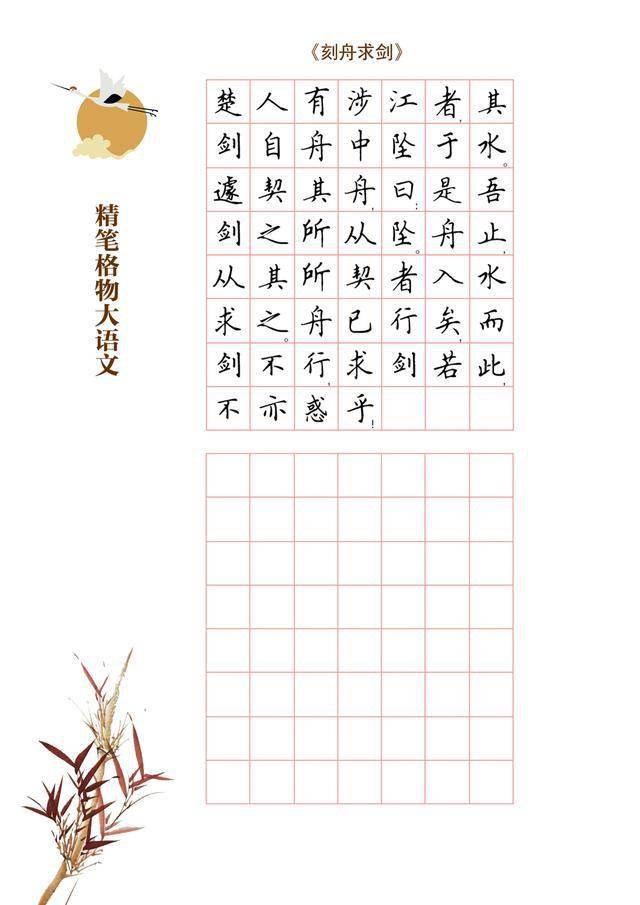 《刻舟求剑》
楚人有涉江者,其
剑自舟中坠于水。
遽契其舟,曰:是吾
剑之所从坠。舟止,
从其所契者入水
求之。舟已行矣,而
剑不行,求剑若此,
不亦惑乎!
精笔格物大语文